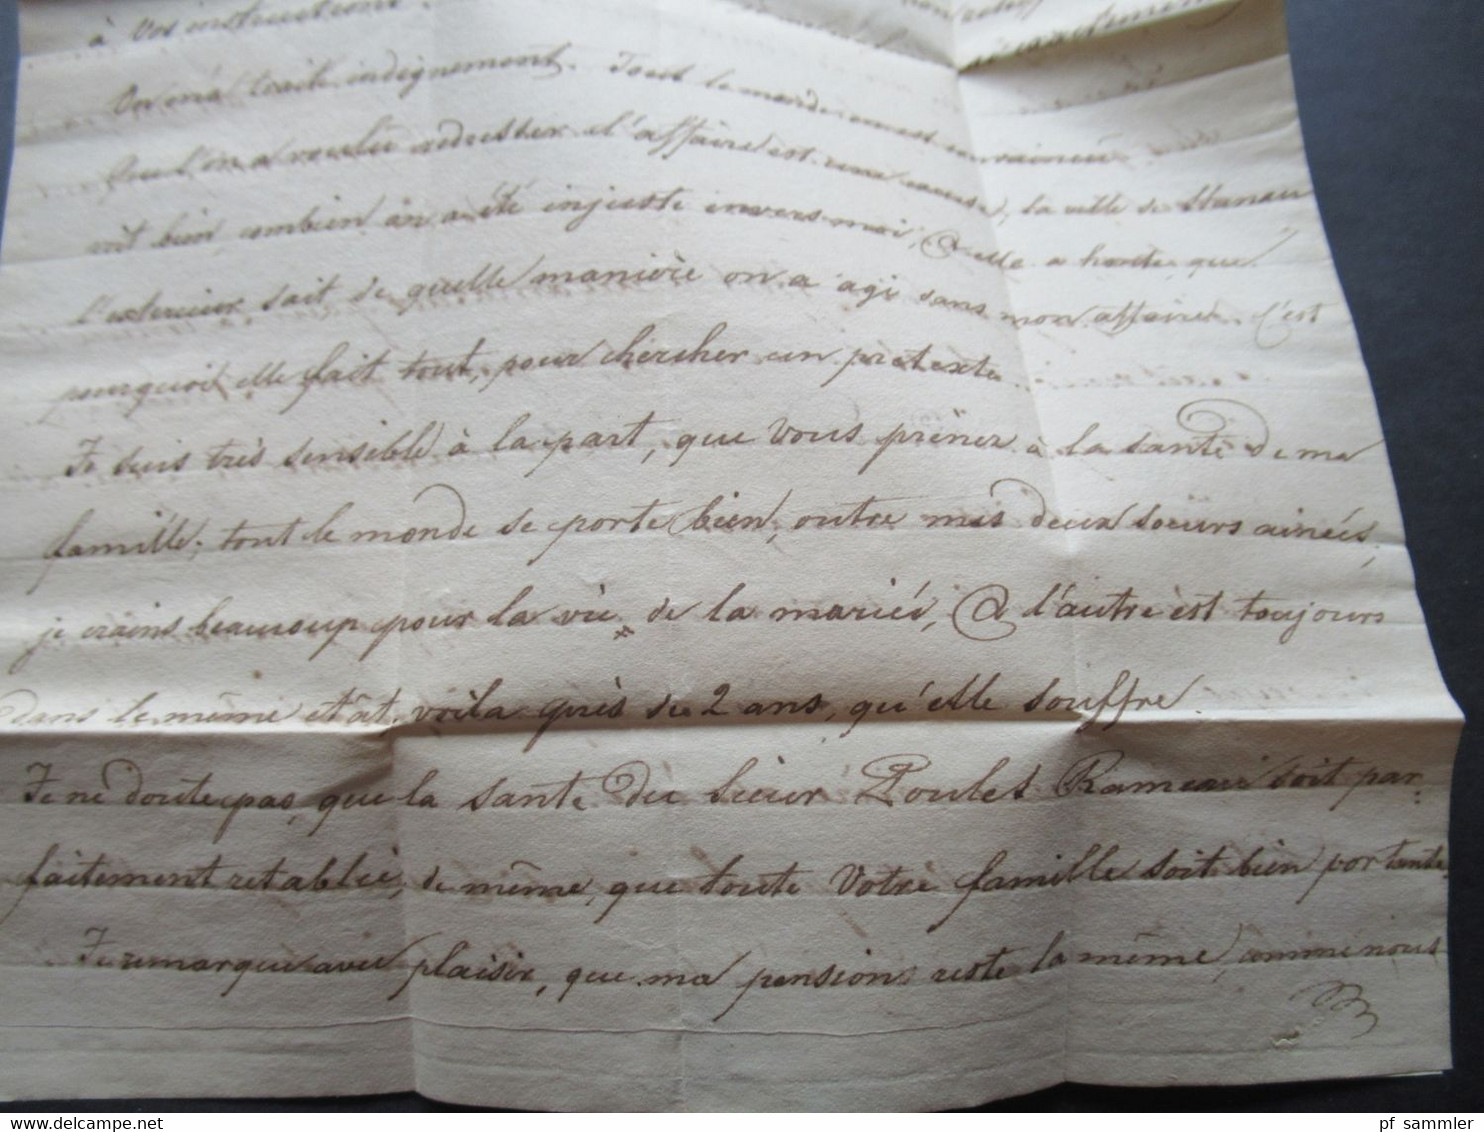 à Vos instructions
On m'a traité indignement. Tout le monde en est convaincu
que l'on a voulu l'affaire est une cause, la ville de Hanau
voit bien combien on a été injuste envers moi, & elle a honte, que
l'exterieur sait, de quelle manière on a agi dans mon affaire. C'est
pourquoi elle fait tout, pour chercher un pretexte.
Je suis très sensible à la part, que Vous prênez à la santé de ma
famille; tout le monde se porte bien, outre mes deux soeurs ainées,
je crains beaucoup pour la vie de la mariée, & l'autre est toujours
dans le même etât, voila près de 2 ans, qu'elle souffre.
Je ne doute pas, que la santé du Sieur Poulet Rameau soit par=
faitement retablie, de même, que toute Votre famille soit bien portante.
Je remarque avec plaisir, que ma pension reste la même, comme nous
pf sammler